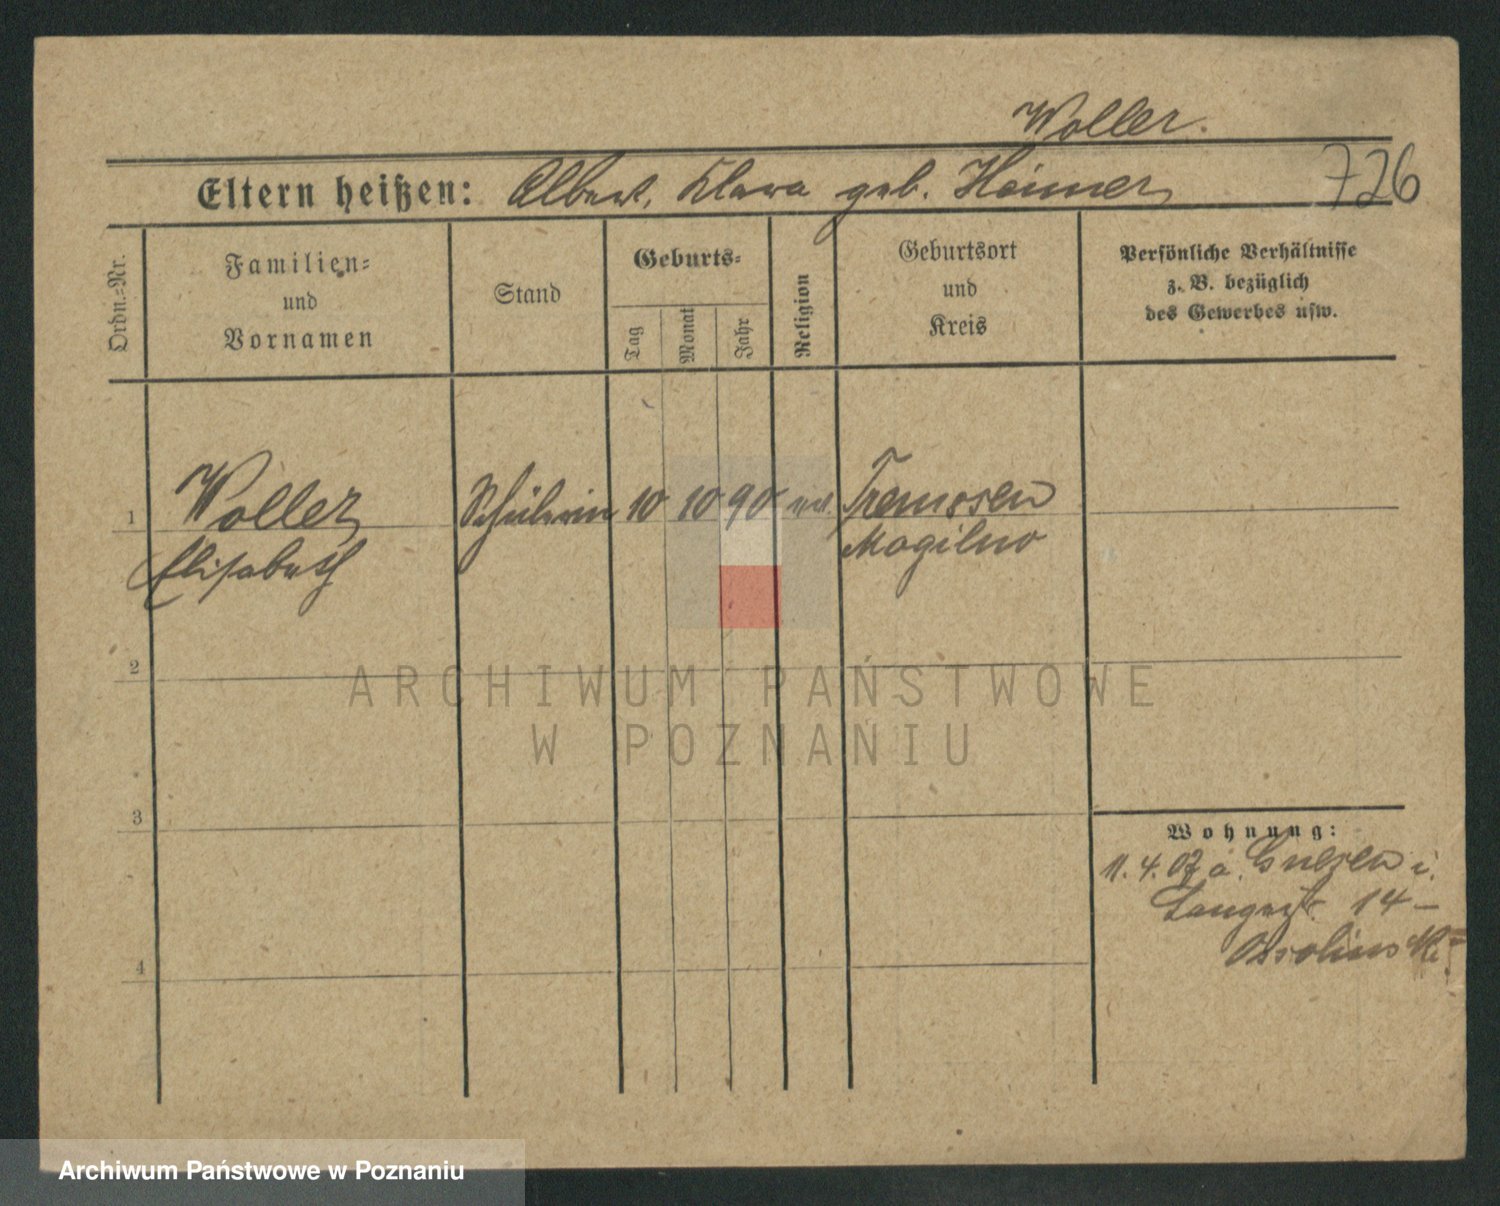 Woller.
Eltern heißen: Albert, Klara geb. Heimer
726
Ordn.=Nr.
Familien=
und
Vornamen
Stand
Geburts=
Tag
Monat
Jahr
Religion
Geburtsort
und
Kreis
Persönliche Verhältnisse
z. B. bezüglich
des Gewerbes usw.
1
Woller
Elisabeth
Schülerin
10
10
90
ev.
Tremessen
Mogilno
2
3
4
Wohnung:
11.4.07 a. Gnesen i.
Langestr. 14 –
Ossolinski
ARCHIWUM PAŃSTWOWE
W POZNANIU
Archiwum Państwowe w Poznaniu